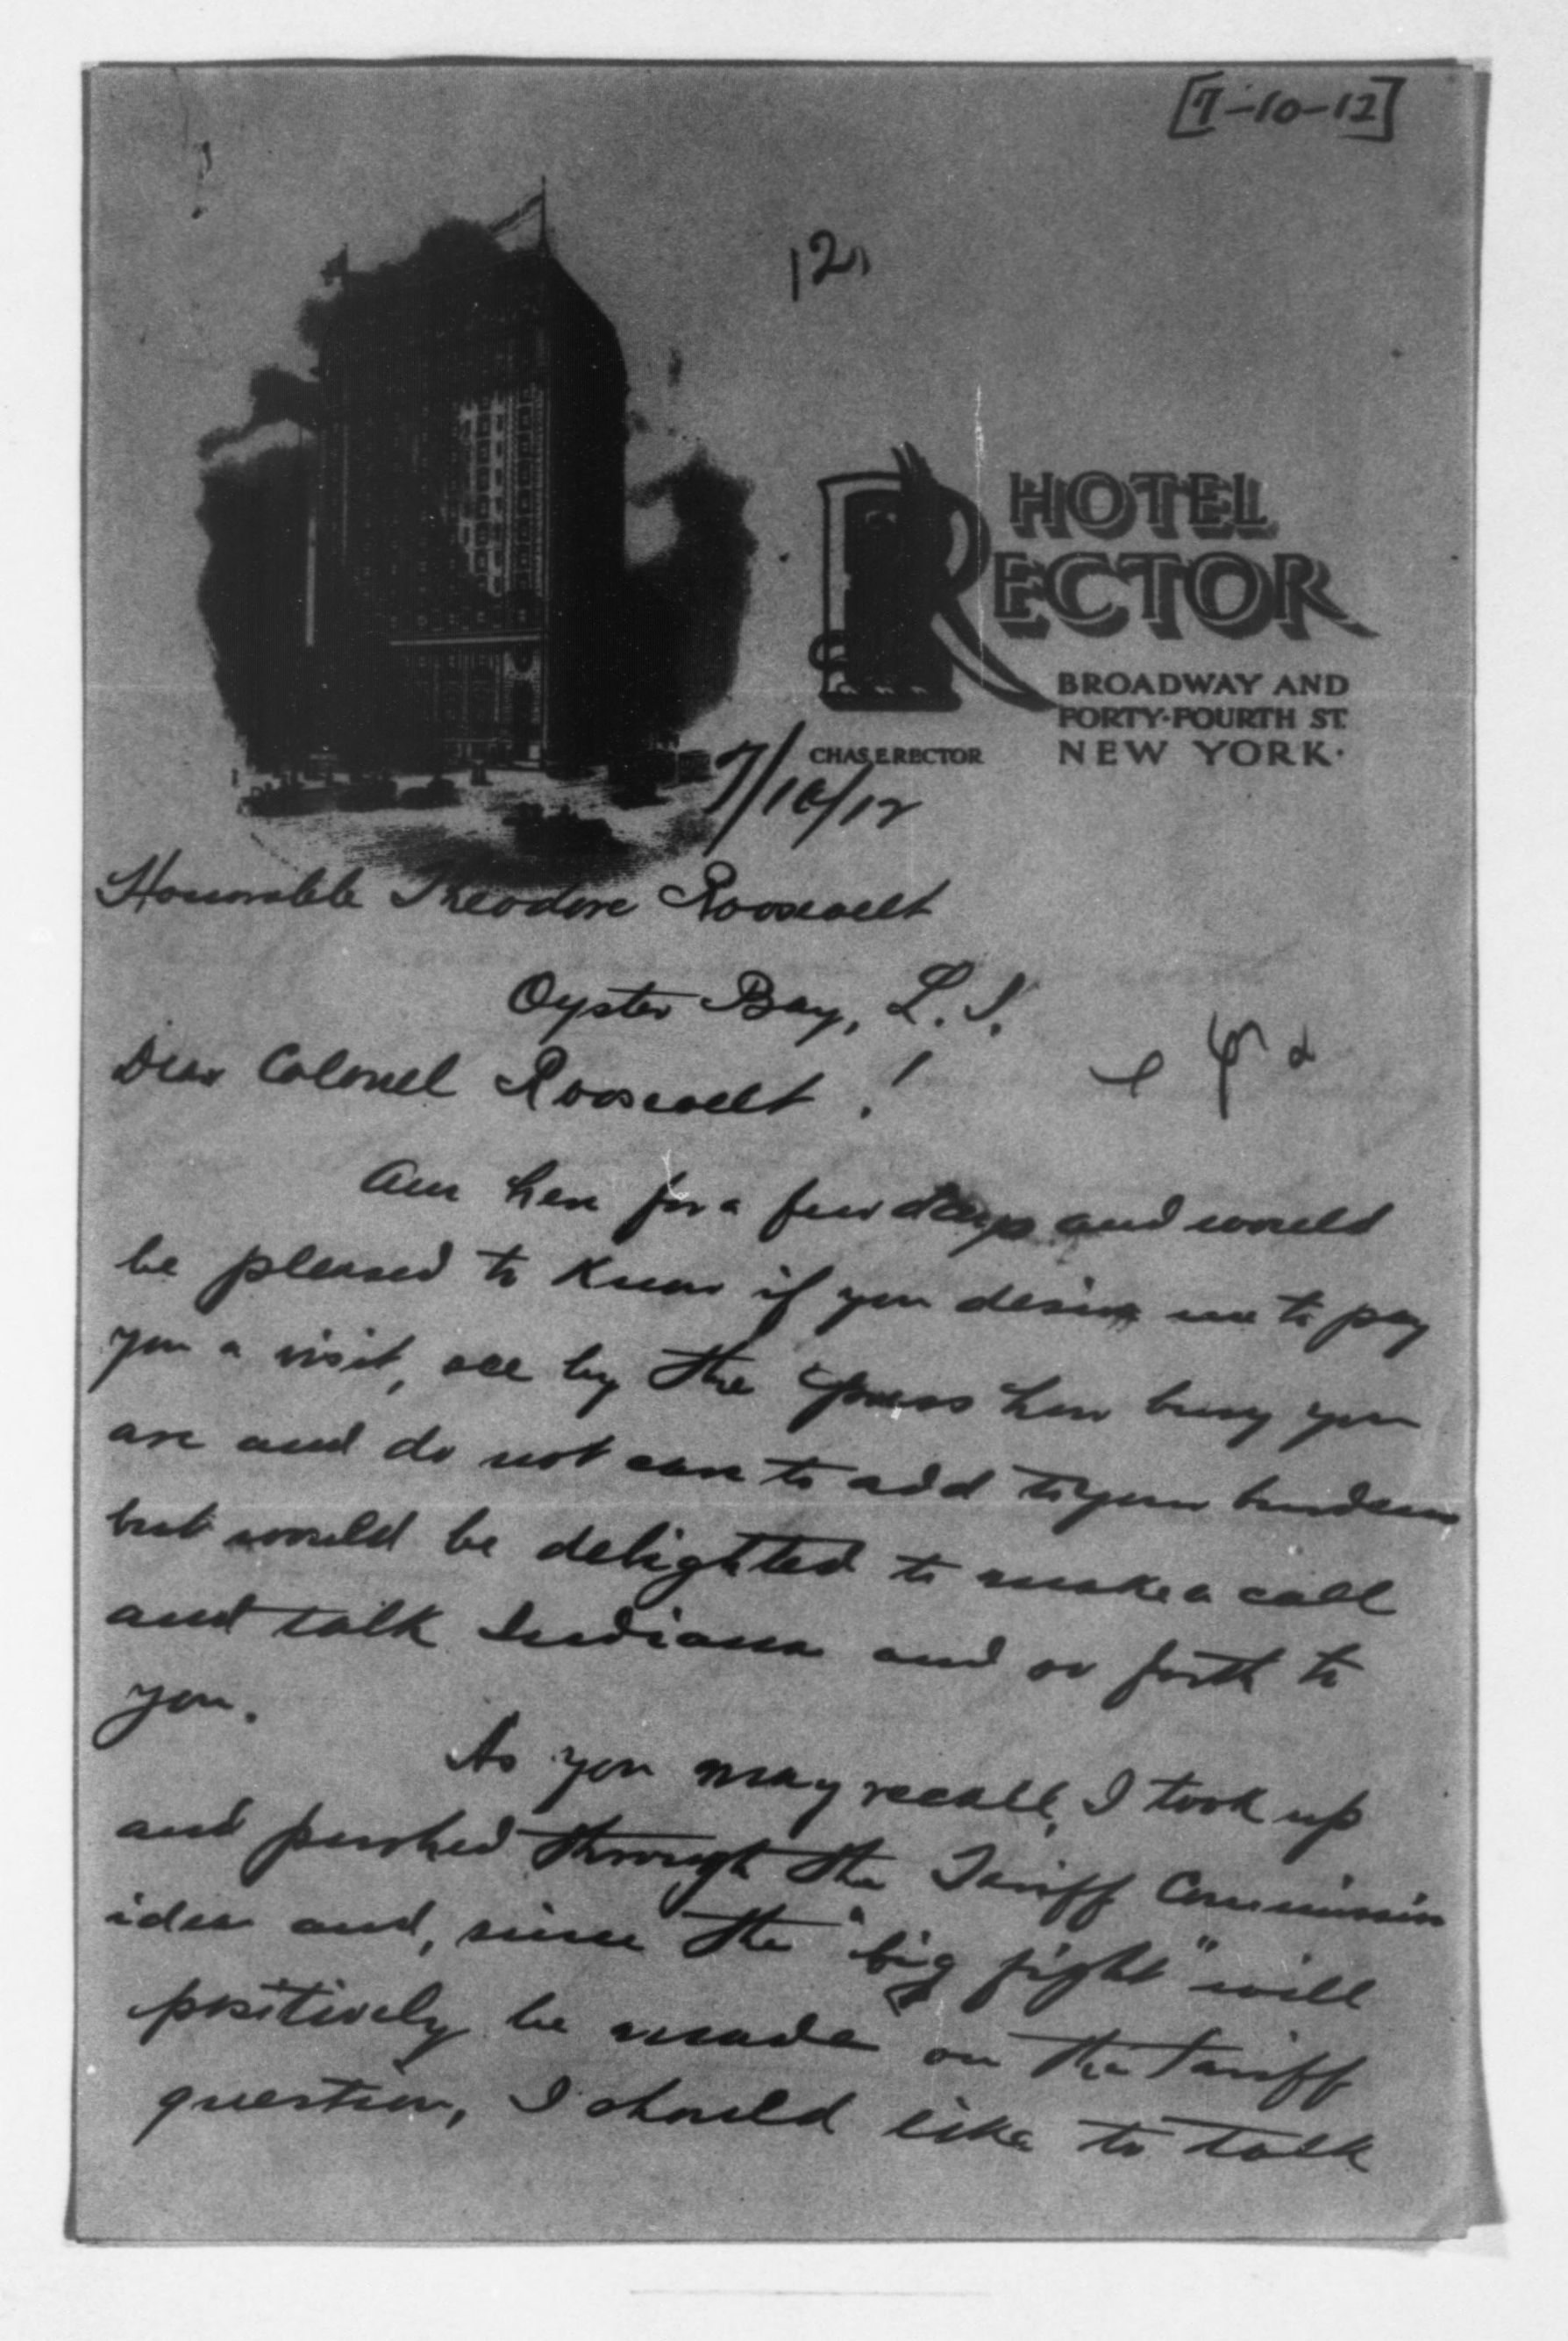 [7-10-12]
121
HOTEL
RECTOR
BROADWAY AND
FORTY-FOURTH ST.
NEW YORK.
CHAS. E. RECTOR
7/10/12
Honorable Theodore Roosevelt
Oyster Bay, L. I.
Dear Colonel Roosevelt!
Am here for a few days and would
be pleased to know if you desire me to pay
you a visit, see by the press how busy you
are and do not care to add to your burdens
but would be delighted to make a call
and talk Indiana and so forth to
you.
As you may recall, I took up
and pushed through the Tariff Commission
idea and, since the "big fight" will
positively be made on the tariff
question, I should like to talk